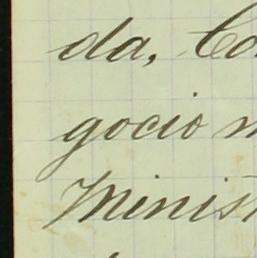 da, Co
gocio n
Minist